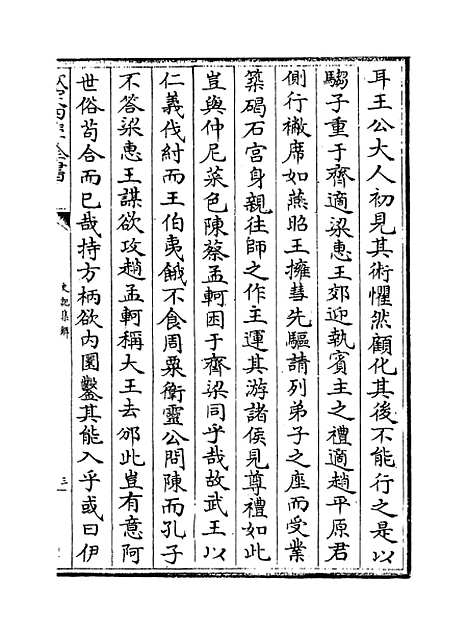 耳王公大人初見其術懼然顧化其後不能行之是以
騶子重于齊適梁惠王郊迎執賓主之禮適趙平原君
側行襒席如燕昭王擁彗先驅請列弟子之座而受業
築碣石宫身親往師之作主運其游諸侯見尊禮如此
豈與仲尼菜色陳蔡孟軻困于齊梁同乎哉故武王以
仁義伐紂而王伯夷餓不食周粟衛靈公問陳而孔子
不答梁惠王謀欲攻趙孟軻稱大王去邠此豈有意阿
世俗苟合而已哉持方柄欲内圜鑿其能入乎或曰伊
史記集解
三